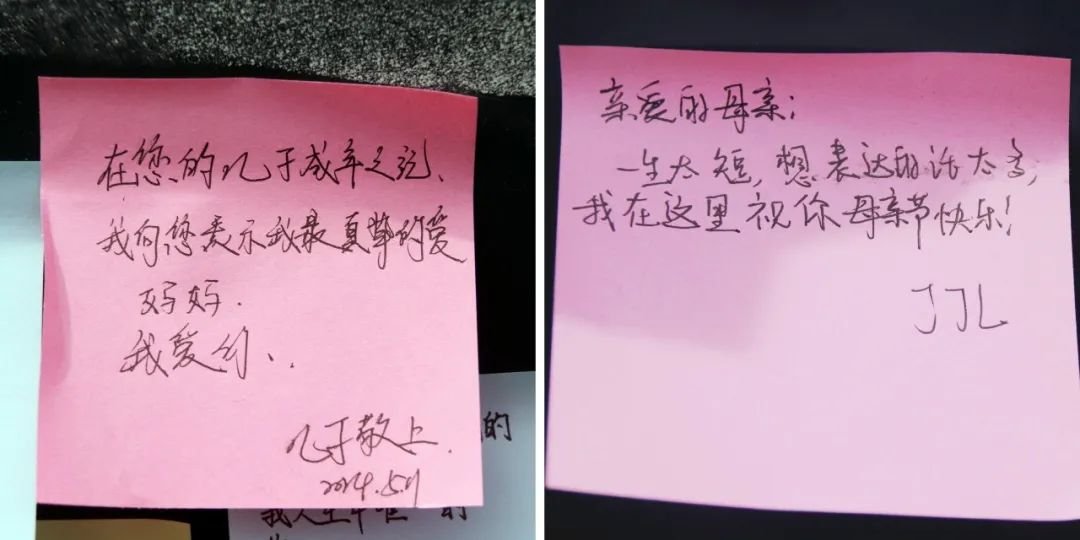 在您的儿子成年之礼、
我向您表示我最真挚的爱
妈妈.
我爱你、.
儿子敬上.
的
亲爱的母亲:
一生太短,想表达的话太多,
我在这里祝你母亲节快乐!
JJL